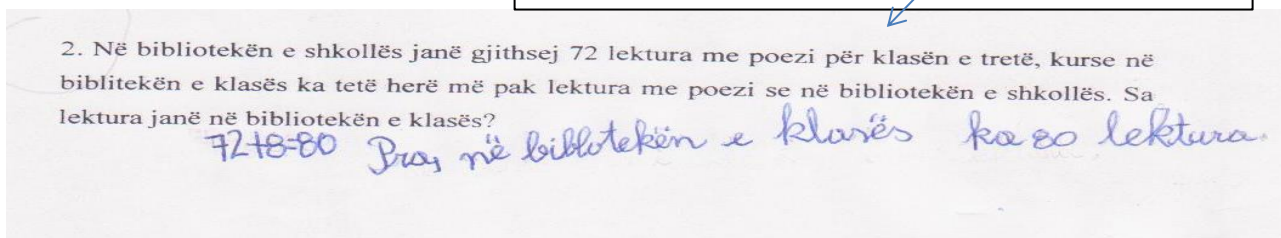 2. Në bibliotekën e shkollës janë gjithsej 72 lektura me poezi për klasën e tretë, kurse në
biblitekën e klasës ka tetë herë më pak lektura me poezi se në bibliotekën e shkollës. Sa
lektura janë në bibliotekën e klasës?
72+8=80 Pra, në biblotekën e klasës ka 80 lektura.